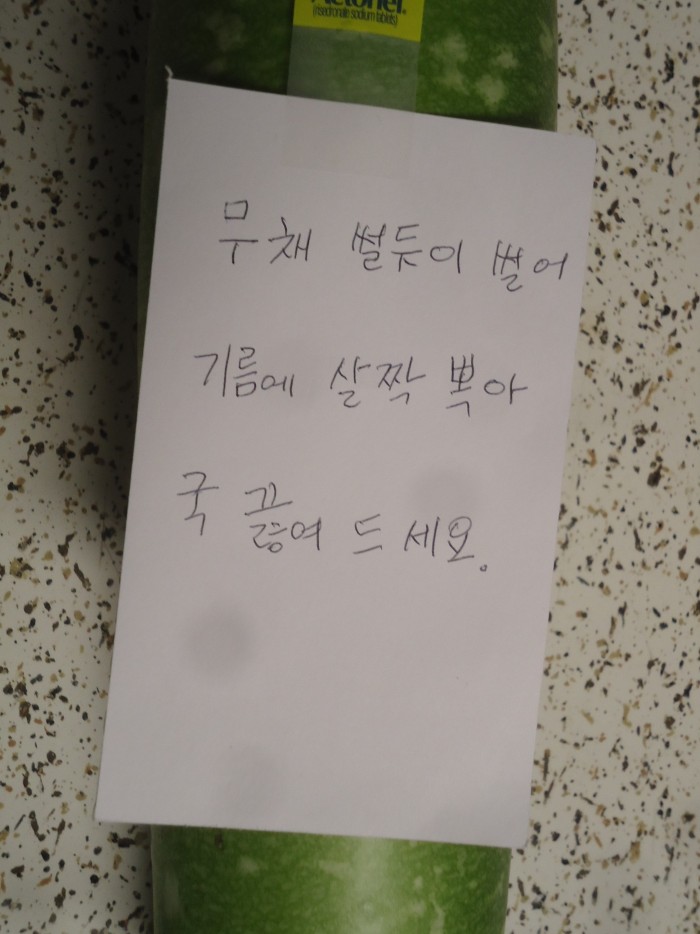 Actonel.
(risedronate sodium tablets)
무채 썰듯이 썰어
기름에 살짝 뽁아
국 끓여 드세요.